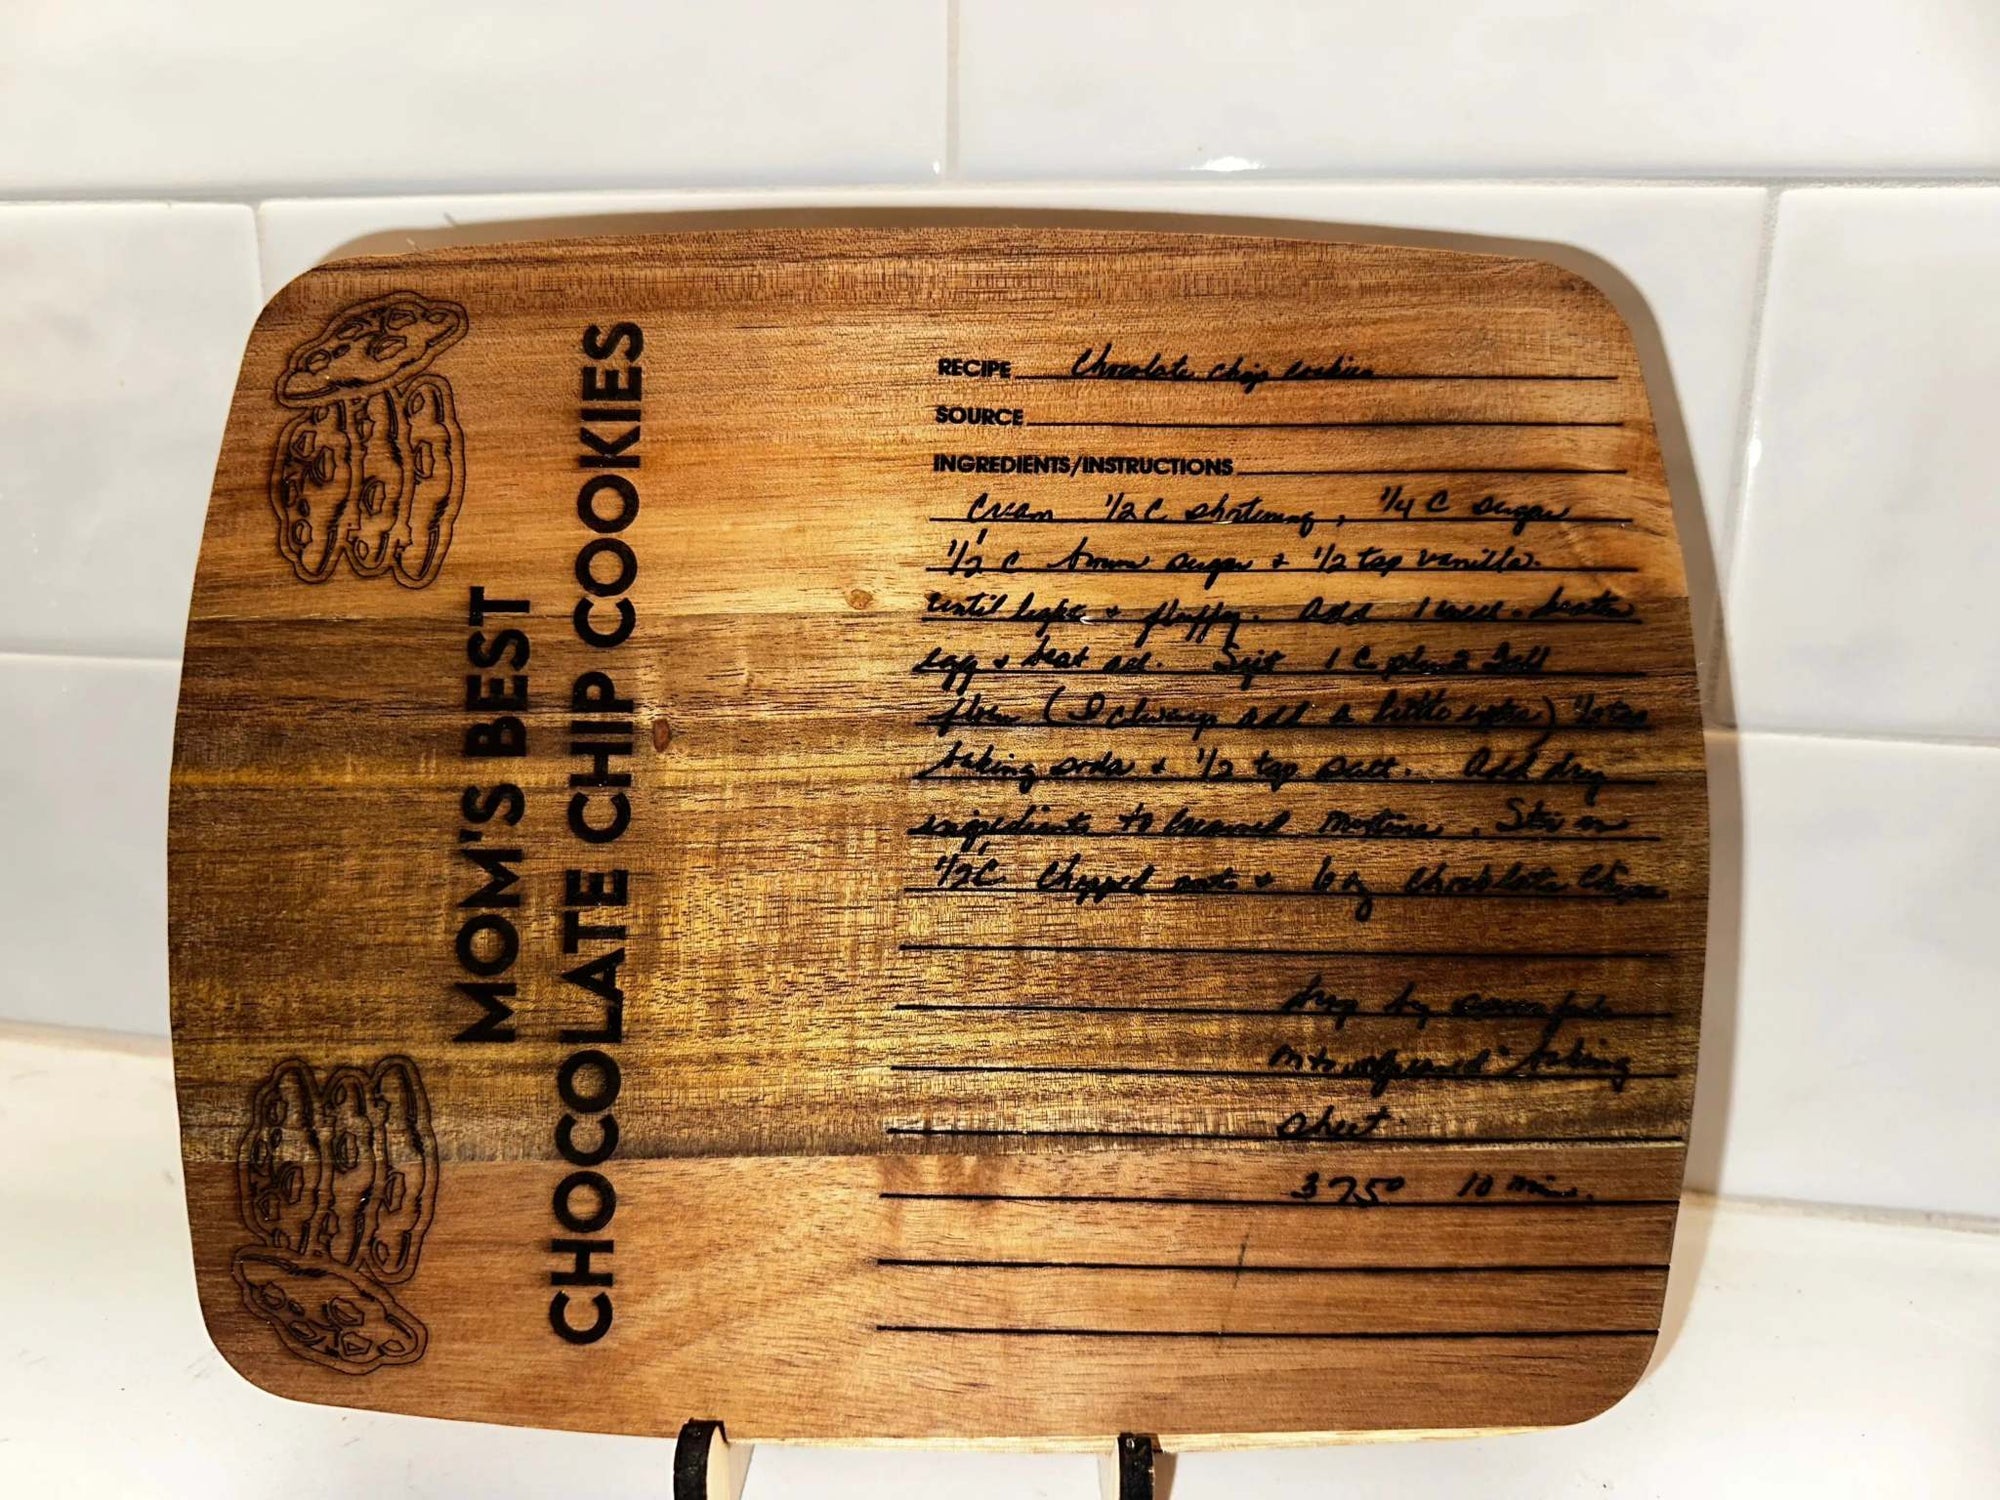 MOM'S BEST
CHOCOLATE CHIP COOKIES
RECIPE Chocolate Chip Cookies
SOURCE
INGREDIENTS/INSTRUCTIONS
Cream 1/2 C shortening, 1/4 C sugar
1/2 C brown sugar + 1/2 tsp vanilla.
until light + fluffy. Add 1 well-beaten
egg + beat all. Sift 1 C plus 2 Tbl
flour (I always add a little extra) 1/2 tsp
baking soda + 1/2 tsp salt. Add dry
ingredients to creamed mixture. Stir in
1/2 C chopped nuts + 6 oz chocolate chips
drop by
onto baking
sheet.
375° 10 min.